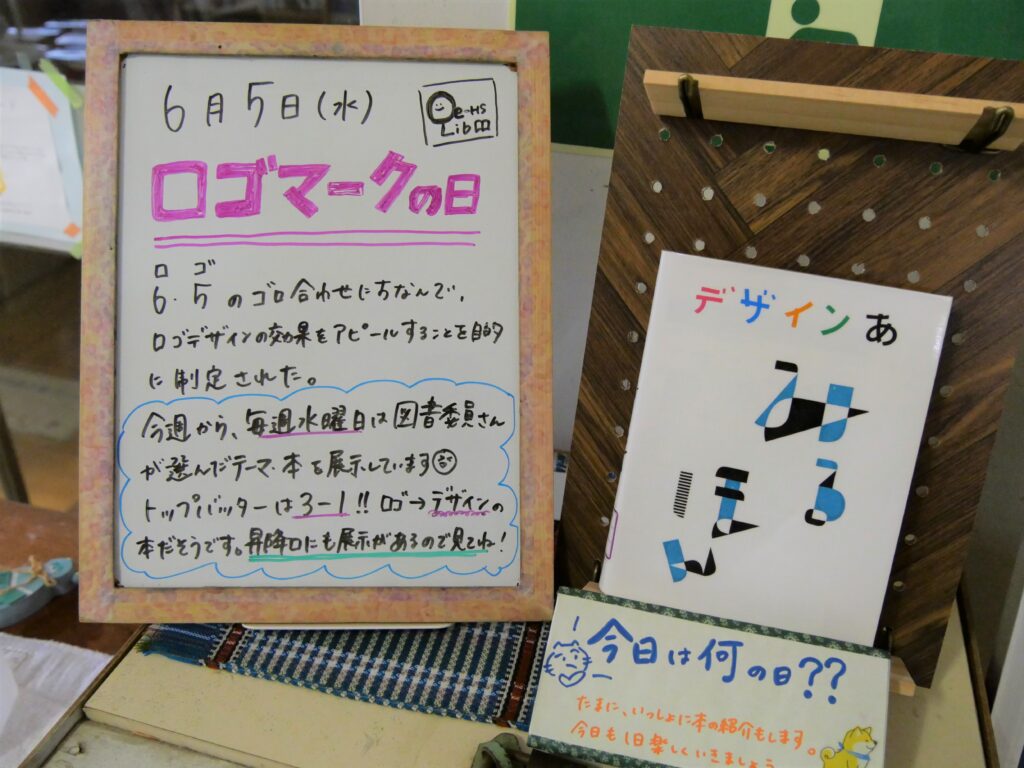 6月5日(水)
Oe-HS
Lib
ロゴマークの日
ロ ゴ
6.5のゴロ合わせにちなんで、
ロゴデザインの効果をアピールすることを目的
に制定された。
今週から、毎週水曜日は図書委員さん
が選んだテーマ・本を展示しています
トップバッターは3-1!! ロゴ→デザインの
本だそうです。昇降口にも展示があるので見てね!
デザインあ
みる
ほん
今日は何の日??
たまに、いっしょに本の紹介もします。
今日も1日楽しくいきましょう